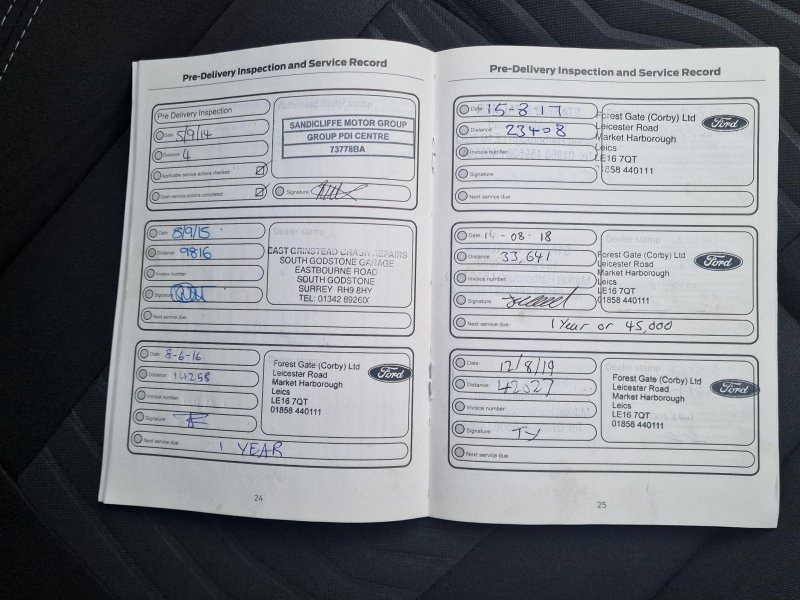 Pre-Delivery Inspection and Service Record
Pre Delivery Inspection
Date: 5/9/14
Distance: 4
Applicable service actions checked:
Open service actions completed:
Authorised dealer stamp
SANDICLIFFE MOTOR GROUP
GROUP PDI CENTRE
73778BA
Signature:
Date: 8/9/15
Distance: 9816
Invoice number:
Signature:
Next service due:
Dealer stamp
EAST GRINSTEAD CRASH REPAIRS
SOUTH GODSTONE GARAGE
EASTBOURNE ROAD
SOUTH GODSTONE
SURREY RH9 8HY
TEL: 01342 89260
Date: 8-6-16
Distance: 14258
Invoice number:
Signature:
Next service due: 1 YEAR
Forest Gate (Corby) Ltd
Leicester Road
Market Harborough
Leics
LE16 7QT
01858 440111
Ford
24
Pre-Delivery Inspection and Service Record
Date: 15-8-17
Distance: 23408
Invoice number:
Signature:
Next service due:
Forest Gate (Corby) Ltd
Leicester Road
Market Harborough
Leics
LE16 7QT
01858 440111
Ford
Date: 14-08-18
Distance: 33,641
Invoice number:
Signature:
Next service due: 1 Year or 45,000
Dealer stamp
Forest Gate (Corby) Ltd
Leicester Road
Market Harborough
Leics
LE16 7QT
01858 440111
Ford
Date: 12/8/19
Distance: 42027
Invoice number:
Signature: TY
Next service due:
Forest Gate (Corby) Ltd
Leicester Road
Market Harborough
Leics
LE16 7QT
01858 440111
Ford
25